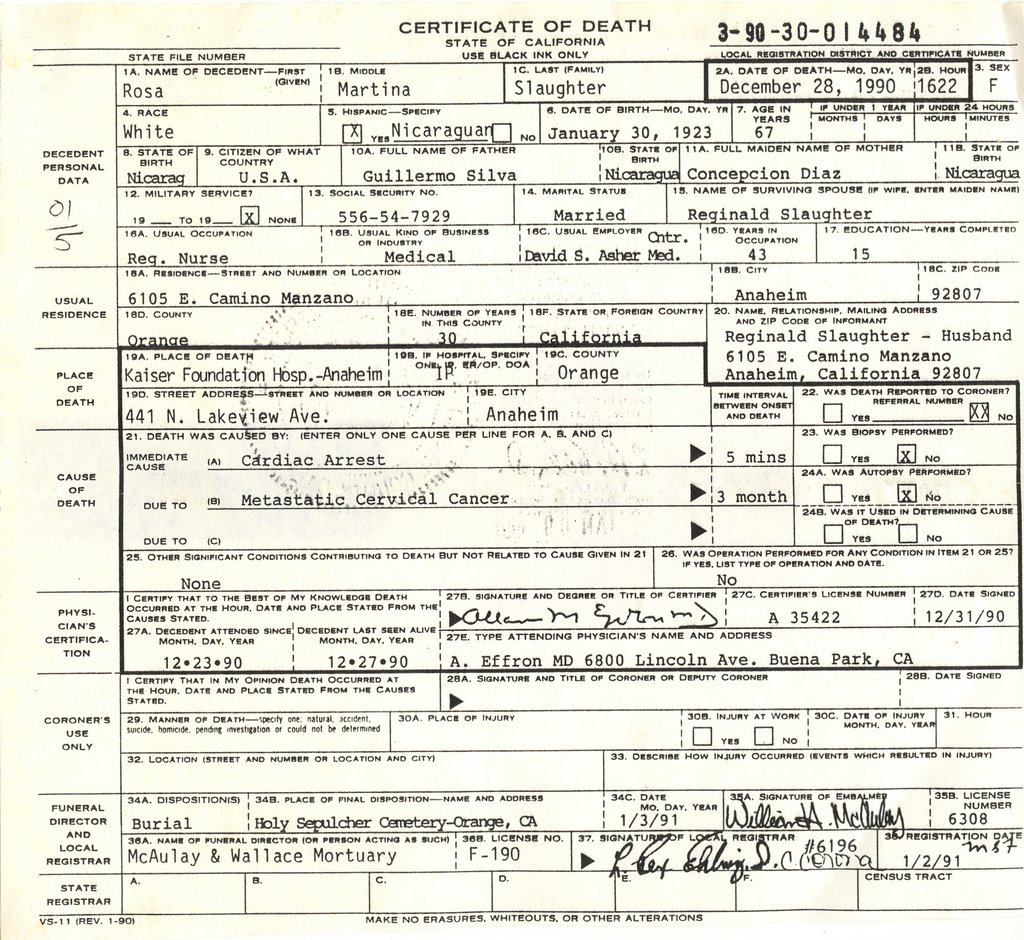 CERTIFICATE OF DEATH
STATE OF CALIFORNIA
USE BLACK INK ONLY
3-90-30-014484
STATE FILE NUMBER
LOCAL REGISTRATION DISTRICT AND CERTIFICATE NUMBER
DECEDENT PERSONAL DATA
1A. NAME OF DECEDENT—FIRST (GIVEN)
Rosa
1B. MIDDLE
Martina
1C. LAST (FAMILY)
Slaughter
2A. DATE OF DEATH—MO, DAY, YR
December 28, 1990
2B. HOUR
1622
3. SEX
F
4. RACE
White
5. HISPANIC—SPECIFY
X YES Nicaraguan NO
6. DATE OF BIRTH—MO, DAY, YR
January 30, 1923
7. AGE IN YEARS
67
IF UNDER 1 YEAR
MONTHS DAYS
IF UNDER 24 HOURS
HOURS MINUTES
8. STATE OF BIRTH
Nicarag
9. CITIZEN OF WHAT COUNTRY
U.S.A.
10A. FULL NAME OF FATHER
Guillermo Silva
10B. STATE OF BIRTH
Nicaragua
11A. FULL MAIDEN NAME OF MOTHER
Concepcion Diaz
11B. STATE OF BIRTH
Nicaragua
01
5
12. MILITARY SERVICE?
19 TO 19 X NONE
13. SOCIAL SECURITY NO.
556-54-7929
14. MARITAL STATUS
Married
15. NAME OF SURVIVING SPOUSE (IF WIFE, ENTER MAIDEN NAME)
Reginald Slaughter
16A. USUAL OCCUPATION
Reg. Nurse
16B. USUAL KIND OF BUSINESS OR INDUSTRY
Medical
16C. USUAL EMPLOYER
Cntr.
David S. Asher Med.
16D. YEARS IN OCCUPATION
43
17. EDUCATION—YEARS COMPLETED
15
USUAL RESIDENCE
18A. RESIDENCE—STREET AND NUMBER OR LOCATION
6105 E. Camino Manzano
18B. CITY
Anaheim
18C. ZIP CODE
92807
18D. COUNTY
Orange
18E. NUMBER OF YEARS IN THIS COUNTY
30
18F. STATE OR FOREIGN COUNTRY
California
20. NAME, RELATIONSHIP, MAILING ADDRESS AND ZIP CODE OF INFORMANT
Reginald Slaughter - Husband
6105 E. Camino Manzano
Anaheim, California 92807
PLACE OF DEATH
19A. PLACE OF DEATH
Kaiser Foundation Hosp.-Anaheim
19B. IF HOSPITAL, SPECIFY ONE: IP, ER/OP, DOA
IP
19C. COUNTY
Orange
19D. STREET ADDRESS—STREET AND NUMBER OR LOCATION
441 N. Lakeview Ave.
19E. CITY
Anaheim
TIME INTERVAL BETWEEN ONSET AND DEATH
22. WAS DEATH REPORTED TO CORONER?
REFERRAL NUMBER
YES XX NO
CAUSE OF DEATH
21. DEATH WAS CAUSED BY: (ENTER ONLY ONE CAUSE PER LINE FOR A, B, AND C)
IMMEDIATE CAUSE (A) Cardiac Arrest
5 mins
23. WAS BIOPSY PERFORMED?
YES X NO
DUE TO (B) Metastatic Cervical Cancer
3 month
24A. WAS AUTOPSY PERFORMED?
YES X NO
DUE TO (C)
24B. WAS IT USED IN DETERMINING CAUSE OF DEATH?
YES NO
25. OTHER SIGNIFICANT CONDITIONS CONTRIBUTING TO DEATH BUT NOT RELATED TO CAUSE GIVEN IN 21
None
26. WAS OPERATION PERFORMED FOR ANY CONDITION IN ITEM 21 OR 25?
IF YES, LIST TYPE OF OPERATION AND DATE.
No
PHYSICIAN'S CERTIFICATION
I CERTIFY THAT TO THE BEST OF MY KNOWLEDGE DEATH OCCURRED AT THE HOUR, DATE AND PLACE STATED FROM THE CAUSES STATED.
27A. DECEDENT ATTENDED SINCE
MONTH, DAY, YEAR
12•23•90
DECEDENT LAST SEEN ALIVE
MONTH, DAY, YEAR
12•27•90
27B. SIGNATURE AND DEGREE OR TITLE OF CERTIFIER
27C. CERTIFIER'S LICENSE NUMBER
A 35422
27D. DATE SIGNED
12/31/90
27E. TYPE ATTENDING PHYSICIAN'S NAME AND ADDRESS
A. Effron MD 6800 Lincoln Ave. Buena Park, CA
CORONER'S USE ONLY
I CERTIFY THAT IN MY OPINION DEATH OCCURRED AT THE HOUR, DATE AND PLACE STATED FROM THE CAUSES STATED.
28A. SIGNATURE AND TITLE OF CORONER OR DEPUTY CORONER
28B. DATE SIGNED
29. MANNER OF DEATH—specify one: natural, accident, suicide, homicide, pending investigation or could not be determined
30A. PLACE OF INJURY
30B. INJURY AT WORK
YES NO
30C. DATE OF INJURY
MONTH, DAY, YEAR
31. HOUR
32. LOCATION (STREET AND NUMBER OR LOCATION AND CITY)
33. DESCRIBE HOW INJURY OCCURRED (EVENTS WHICH RESULTED IN INJURY)
FUNERAL DIRECTOR AND LOCAL REGISTRAR
34A. DISPOSITION(S)
Burial
34B. PLACE OF FINAL DISPOSITION—NAME AND ADDRESS
Holy Sepulcher Cemetery-Orange, CA
34C. DATE
MO, DAY, YEAR
1/3/91
35A. SIGNATURE OF EMBALMER
William A. McAulay
35B. LICENSE NUMBER
6308
36A. NAME OF FUNERAL DIRECTOR (OR PERSON ACTING AS SUCH)
McAulay & Wallace Mortuary
36B. LICENSE NO.
F-190
37. SIGNATURE OF LOCAL REGISTRAR
#6196
38. REGISTRATION DATE
1/2/91
STATE REGISTRAR
A. B. C. D. E. F. CENSUS TRACT
VS-11 (REV. 1-90)
MAKE NO ERASURES, WHITEOUTS, OR OTHER ALTERATIONS